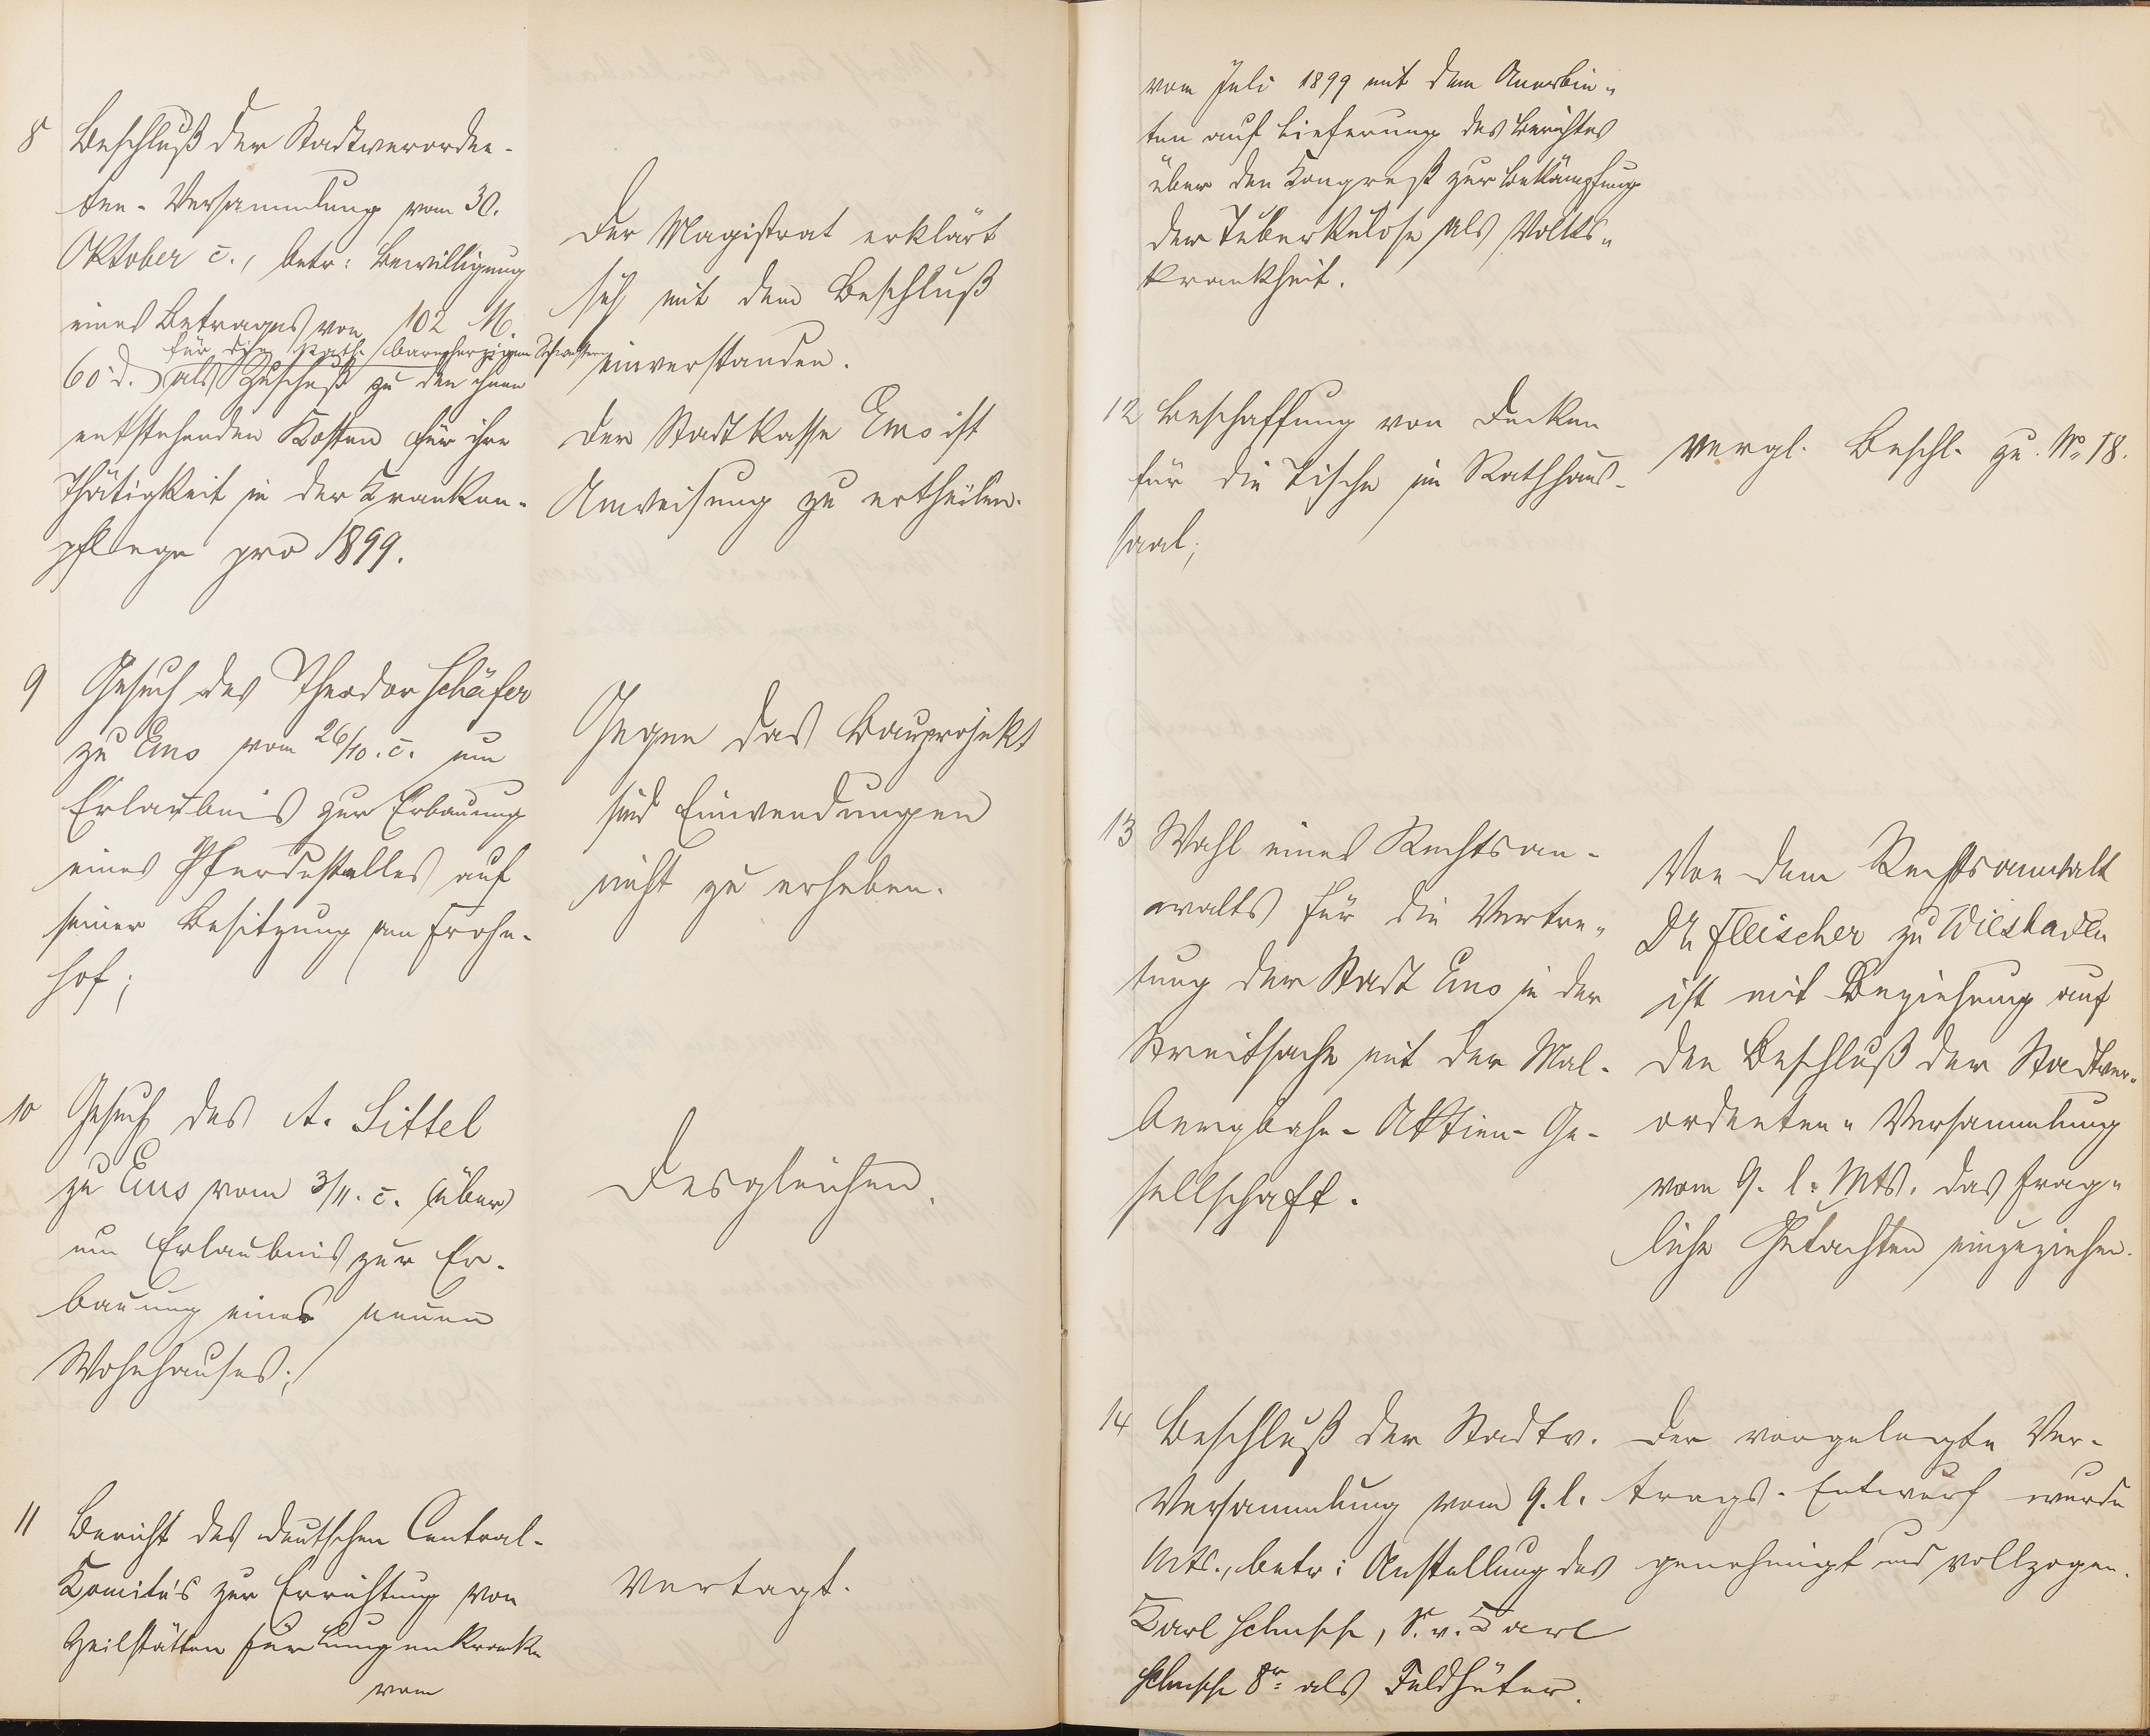 8 Beschluß der Stadtverordne-
ten-Versammlung vom 30.
Oktober c., betr: Bewilligung
eines Betrages von 102 M.
für die Kath. barmherzigen Schwestern
60 d. als Zuschuß zu den ihnen
entstehenden Kosten für ihre
Thätigkeit in der Kranken-
pflege pro 1899.
Der Magistrat erklärt
sich mit dem Beschluß
einverstanden.
Der Stadtkasse Ems ist
Anweisung zu ertheilen.
9 Gesuch des Theodor Schäfer
zu Ems vom 26/10. c. um
Erlaubnis zur Erbauung
eines Pferdestalles auf
seiner Besitzung am Frohn-
hof;
Gegen das Bauprojekt
sind Einwendungen
nicht zu erheben.
10 Gesuch des A. Sittel
zu Ems vom 3/11. c. über
um Erlaubnis zur Er-
bauung eines neuen
Wohnhauses;
Desgleichen.
11 Bericht des deutschen Central-
Komité's zur Errichtung von
Heilstätten für Lungenkranke
vom
Vertagt.
vom Juli 1899 mit dem Anerbie-
ten auf Lieferung des Berichtes
über den Kongreß zur Bekämpfung
der Tuberkulose als Volks-
krankheit.
12 Beschaffung von Decken
für die Tische im Rathhaus-
saal;
Vergl. Beschl. zu No 18.
13 Wahl eines Rechtsan-
walts für die Vertre-
tung der Stadt Ems in der
Streitsache mit der Mal-
bergbahn-Aktien-Ge-
sellschaft.
Von dem Rechtsanwalt
Dr Fleischer zu Wiesbaden
ist mit Beziehung auf
den Beschluß der Stadtver-
ordneten-Versammlung
vom 9. l. Mts. das frag-
liche Gutachten einzuziehen.
14 Beschluß der Stadtv.
Versammlung vom 9. l.
Mts., betr: Anstellung des
Karl, S. v. Karl
8r als Feldhüter.
Der vorgelegte Ver-
trags-Entwurf wurde
genehmigt und vollzogen.